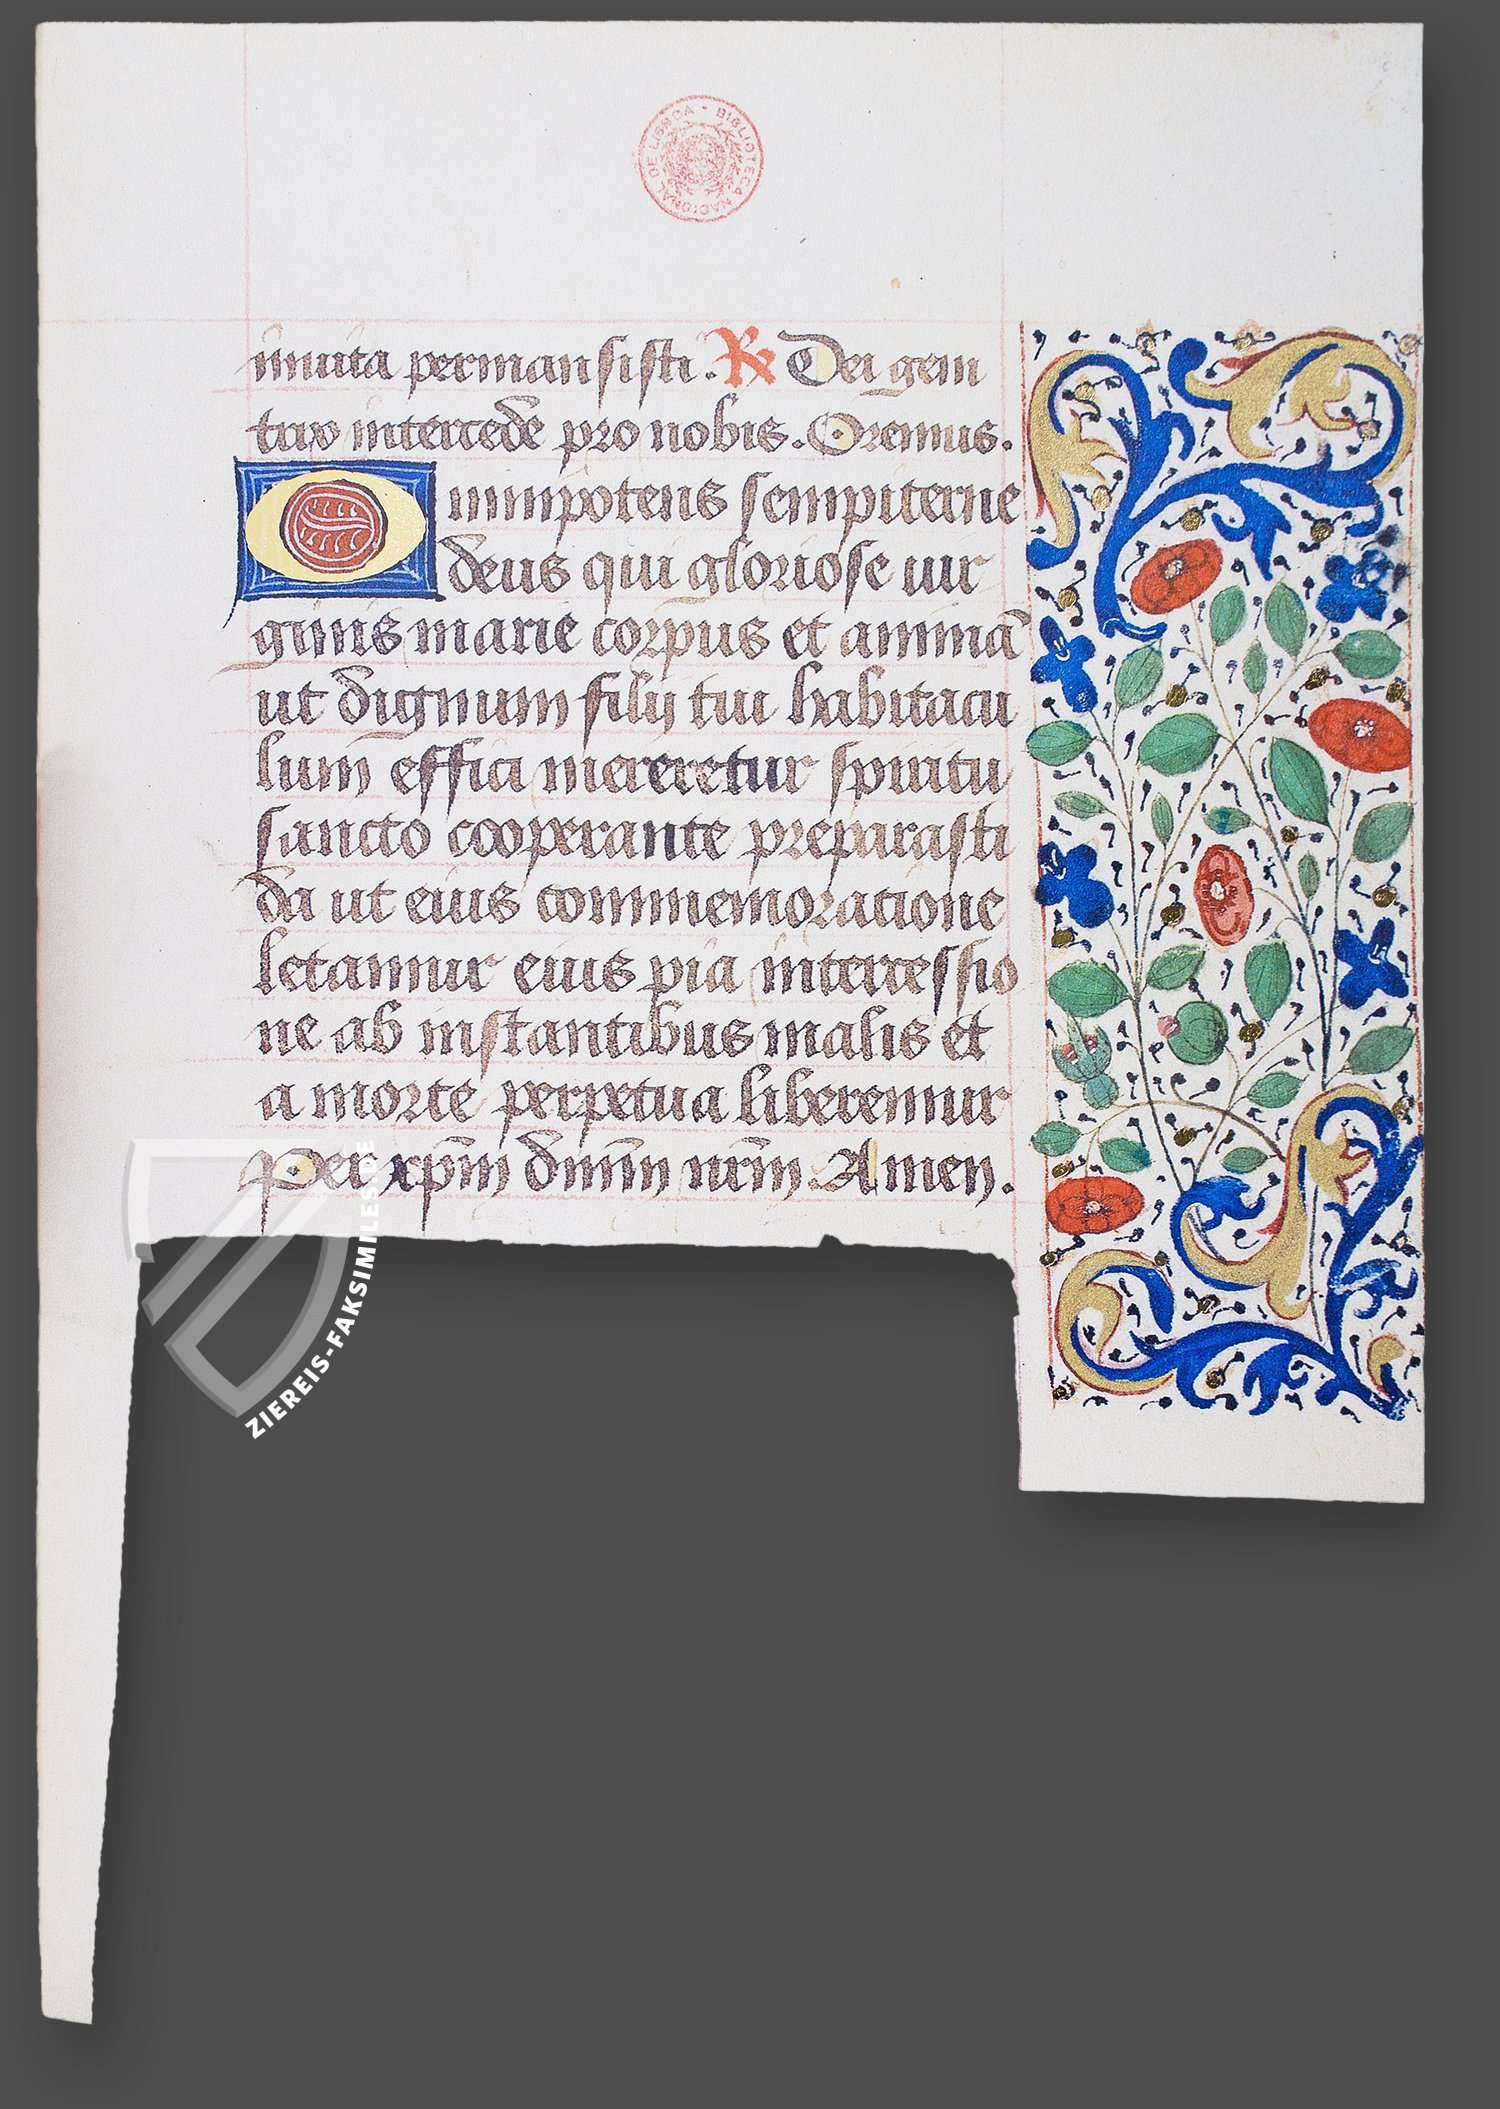 BIBLIOTECA NACIONAL DE LISBOA
inuita permansisti. ℟ Dei geni
trix intercede pro nobis. Oremus.
Omnipotens sempiterne
deus qui gloriose uir
ginis marie corpus et animã
ut dignum filij tui habitacu
lum effici mereretur spiritu
sancto cooperante preparasti
da ut eius commemoratione
letamur eius pia intercessio
ne ab instantibus malis et
a morte perpetua liberemur
Per xp̃m dñm nr̃m. Amen.
ZIEREIS-FAKSIMILES.DE